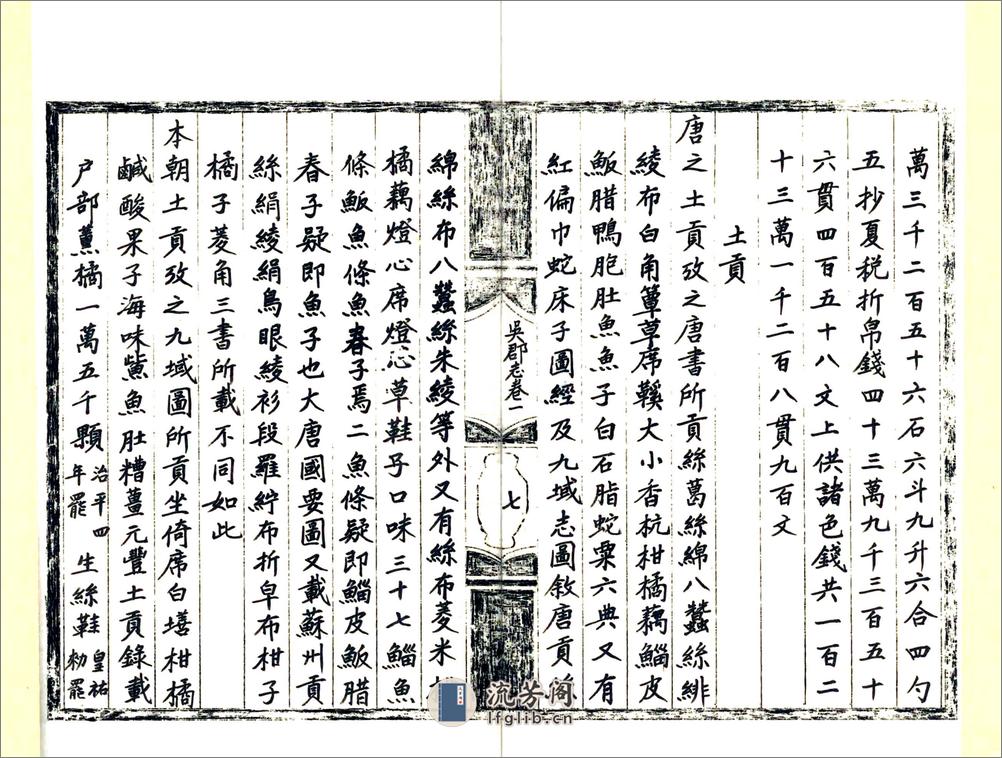 萬三千二百五十六石六斗九升六合四勺
五抄夏税折帛錢四十三萬九千三百五十
六貫四百五十八文上供諸色錢共一百二
十三萬一千二百八貫九百文
土貢
唐之土貢攷之唐書所貢絲葛絲綿八蠶絲緋
綾布白角簟草席鞵大小香秔柑橘藕鯔皮
鮍腊鴨胞肚魚魚子白石脂蛇粟六典又有
紅偏巾蛇床子圖經及九域志圖敘唐貢
吳郡志卷一
七
綿絲布八蠶絲朱綾等外又有絲布菱米
橘藕燈心席燈心草鞋子口味三十七鯔魚
條鮍魚條魚春子焉二魚條疑即鯔皮鮍腊
春子疑即魚子也大唐國要圖又載蘇州貢
絲絹綾絹烏眼綾衫段羅紵布折皁布柑子
橘子菱角三書所載不同如此
本朝土貢攷之九域圖所貢坐倚席白墡柑橘
鹹酸果子海味鮆魚肚糟薑元豐土貢錄載
户部薰橘一萬五千顆治平四年罷生絲鞋皇祐勑罷
流芳阁
lfglib.cn